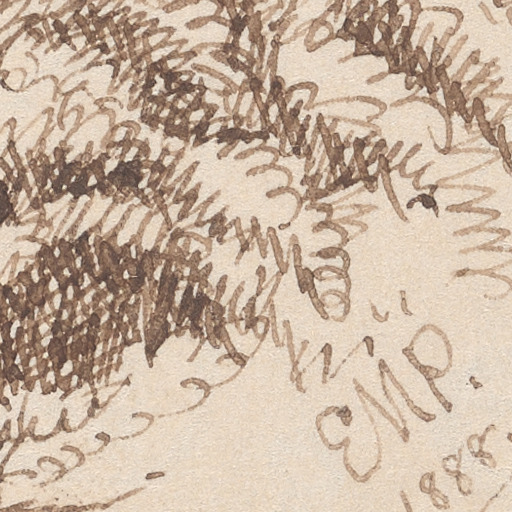 EMP
1888